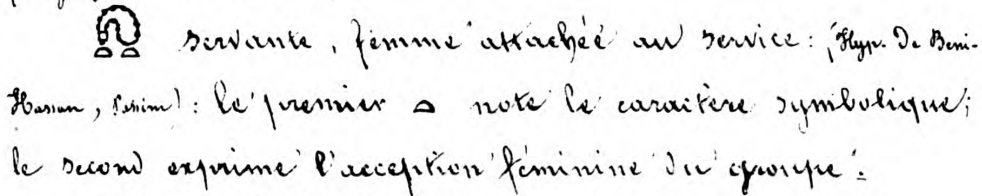 servante, femme attachée au service : (Hyp. de Beni-
Hassan, Passim) : le premier ⌓ note le caractère symbolique ;
le second exprime l'acception féminine du groupe.